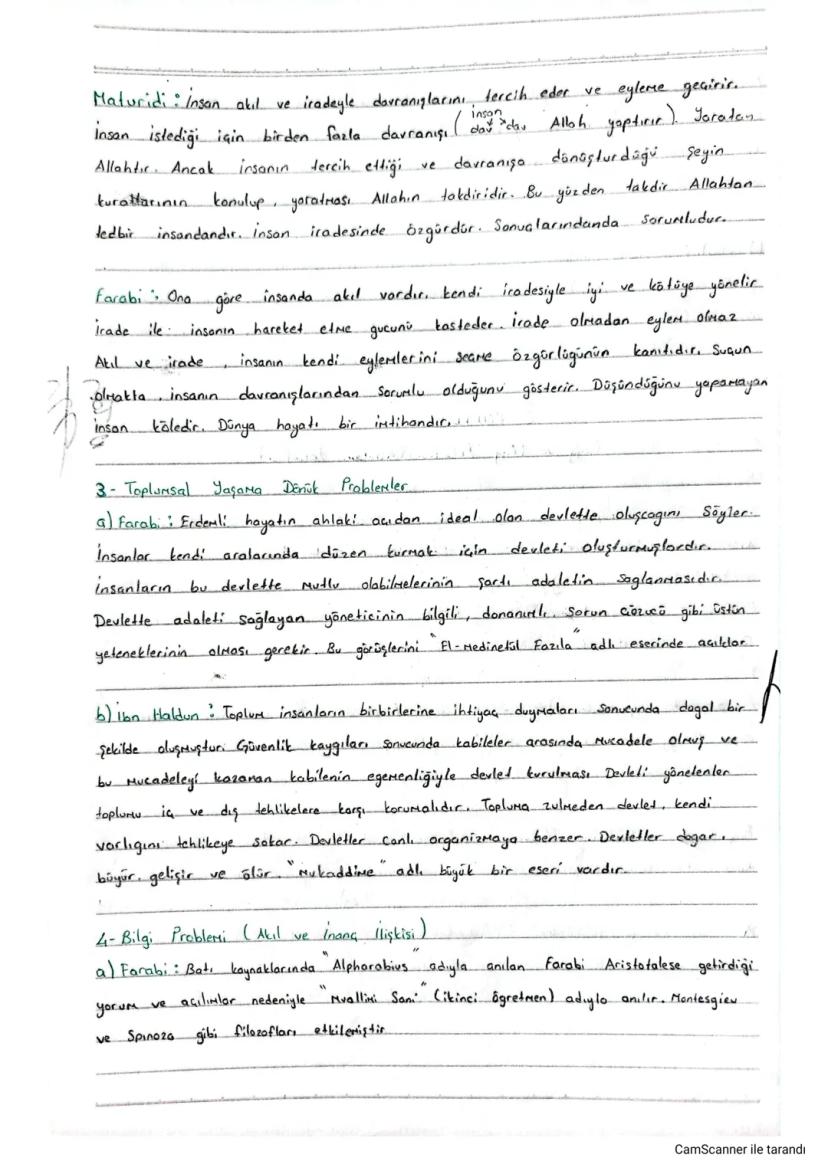 Maturidi : İnsan akıl ve iradeyle davranışlarını tercih eder ve eyleme geçirir.
İnsan istediği için birden fazla davranışı ( insan dav dav Allah yaptırır ). Yaratan
Allahtır. Ancak insanın tercih ettiği ve davranışa dönüşturduğu şeyin
kurallarının konulup, yaratması Allahın takdiridir. Bu yüzden takdir Allahtan
tedbir insandandır. İnsan iradesinde özgürdür. Sonuçlarındanda sorumludur.
Farabi : Ona göre insanda akıl vardır, kendi iradesiyle iyi ve kötüye yönelir
İrade ile insanın hareket etme gucunu kasteder. İrade olmadan eylem olmaz
Akıl ve irade, insanın kendi eylemlerini seçme özgürlüğünün kanıtıdır. Suçun
olmakta, insanın davranışlarından sorumlu olduğunu gösterir. Düşündüğünu yapamayan
insan köledir. Dünya hayatı bir imtihandır.
3- Toplumsal Yaşama Dönük Problemler
a) Farabi : Erdemli hayatın ahlaki açıdan ideal olan devlette oluşcagını Söyler.
İnsanlar kendi aralarında düzen kurmak için devleti oluşturmuşlardır.
insanların bu devlette mutlu olabilmelerinin şartı adaletin saglanmasıdır.
Devlette adaleti sağlayan yöneticinin bilgili, donanımlı, sorun çözücü gibi üstün
yeteneklerinin olması gerekir. Bu görüşlerini "El-Medinetül Fazıla" adlı eserinde açıklar
b) ibn Haldun : Toplum insanların birbirlerine ihtiyaç duymaları sonucunda dogal bir
şekilde oluşmuştur. Güvenlik kaygıları sonucunda kabileler arasında mucadele olmuş ve
bu mucadeleyi kazanan kabilenin egemenliğiyle devlet kurulması Devleti yönetenler
toplumu iç ve dış tehlikelere karşı korumalıdır. Topluma zulmeden devlet, kendi
varlıgını tehlikeye sokar. Devletler canlı organizmaya benzer. Devletler dogar,
büyür, gelişir ve ölür. "Mukaddime" adlı büyük bir eseri vardır.
4- Bilgi Problemi ( Akıl ve İnanç İlişkisi )
a) Farabi : Batı kaynaklarında "Alpharabius" adıyla anılan Farabi Aristotalese getirdiği
yorum ve açılımlar nedeniyle "Muallimi Sani" (ikinci ögretmen) adıyla anılır. Montesgieu
ve Spinoza gibi filozofları etkilemiştir
CamScanner ile tarandı